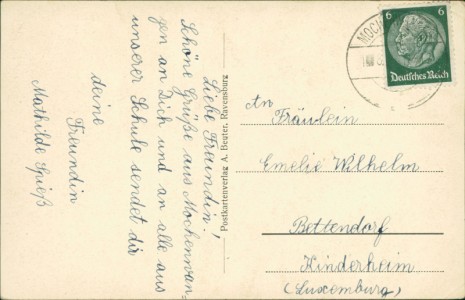 Liebe Freundin!
Schöne Grüße aus Mochenwan-
gen an Dich und an alle aus
unserer Schule sendet dir
deine
Freundin
Mathilde Spieß
Postkartenverlag A. Beuter, Ravensburg
6 6
Deutsches Reich
An
Fräulein
Emelie Wilhelm
Bettendorf
Kinderheim
(Luxemburg)